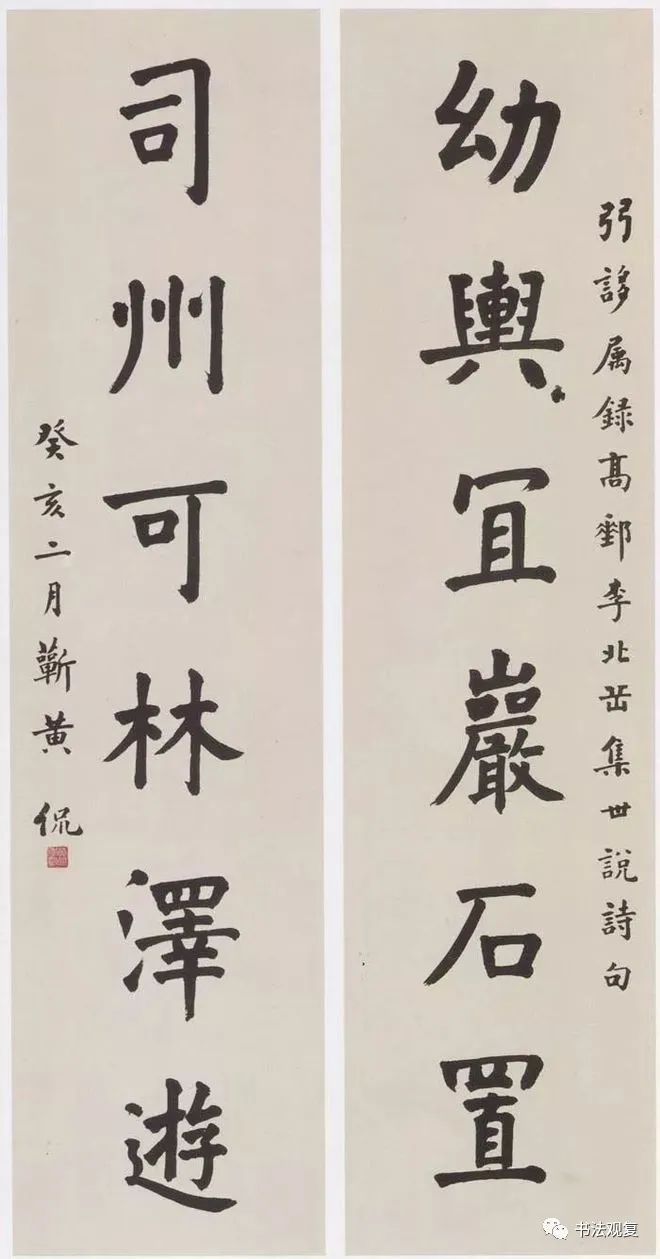 弜誃属録高郵李北岳集世說詩句
幼輿冝巖石置
司州可林澤遊
癸亥二月蘄黄侃
书法观复